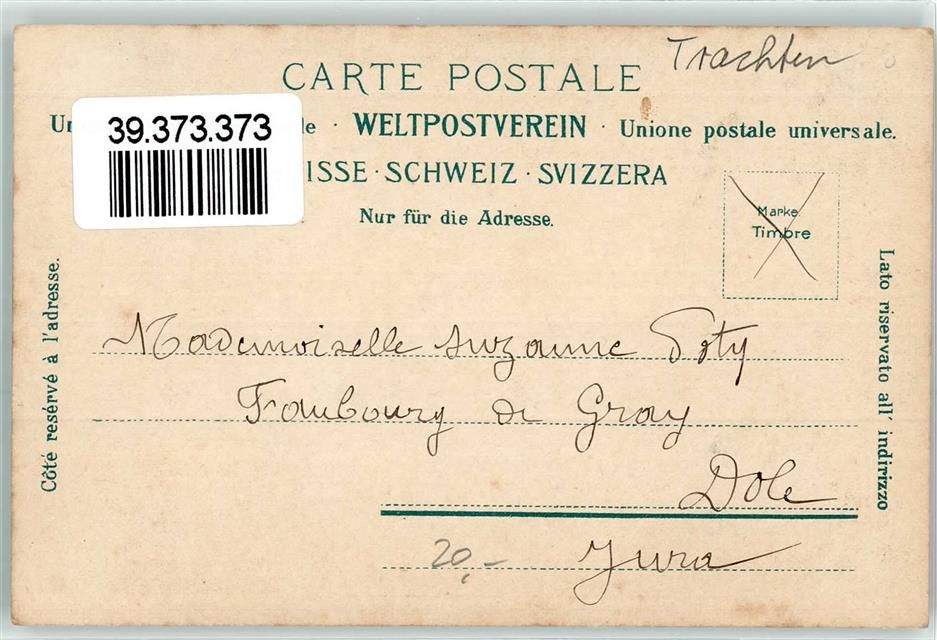 Trachten
CARTE POSTALE
39.373.373
Un le · WELTPOSTVEREIN · Unione postale universale.
ISSE · SCHWEIZ · SVIZZERA
Nur für die Adresse.
Marke.
Timbre
Côté resérvé à l'adresse.
Lato riservato all' indirizzo
Mademoiselle Suzanne Poty
Faubourg de Gray
Dole
20,-
Jura